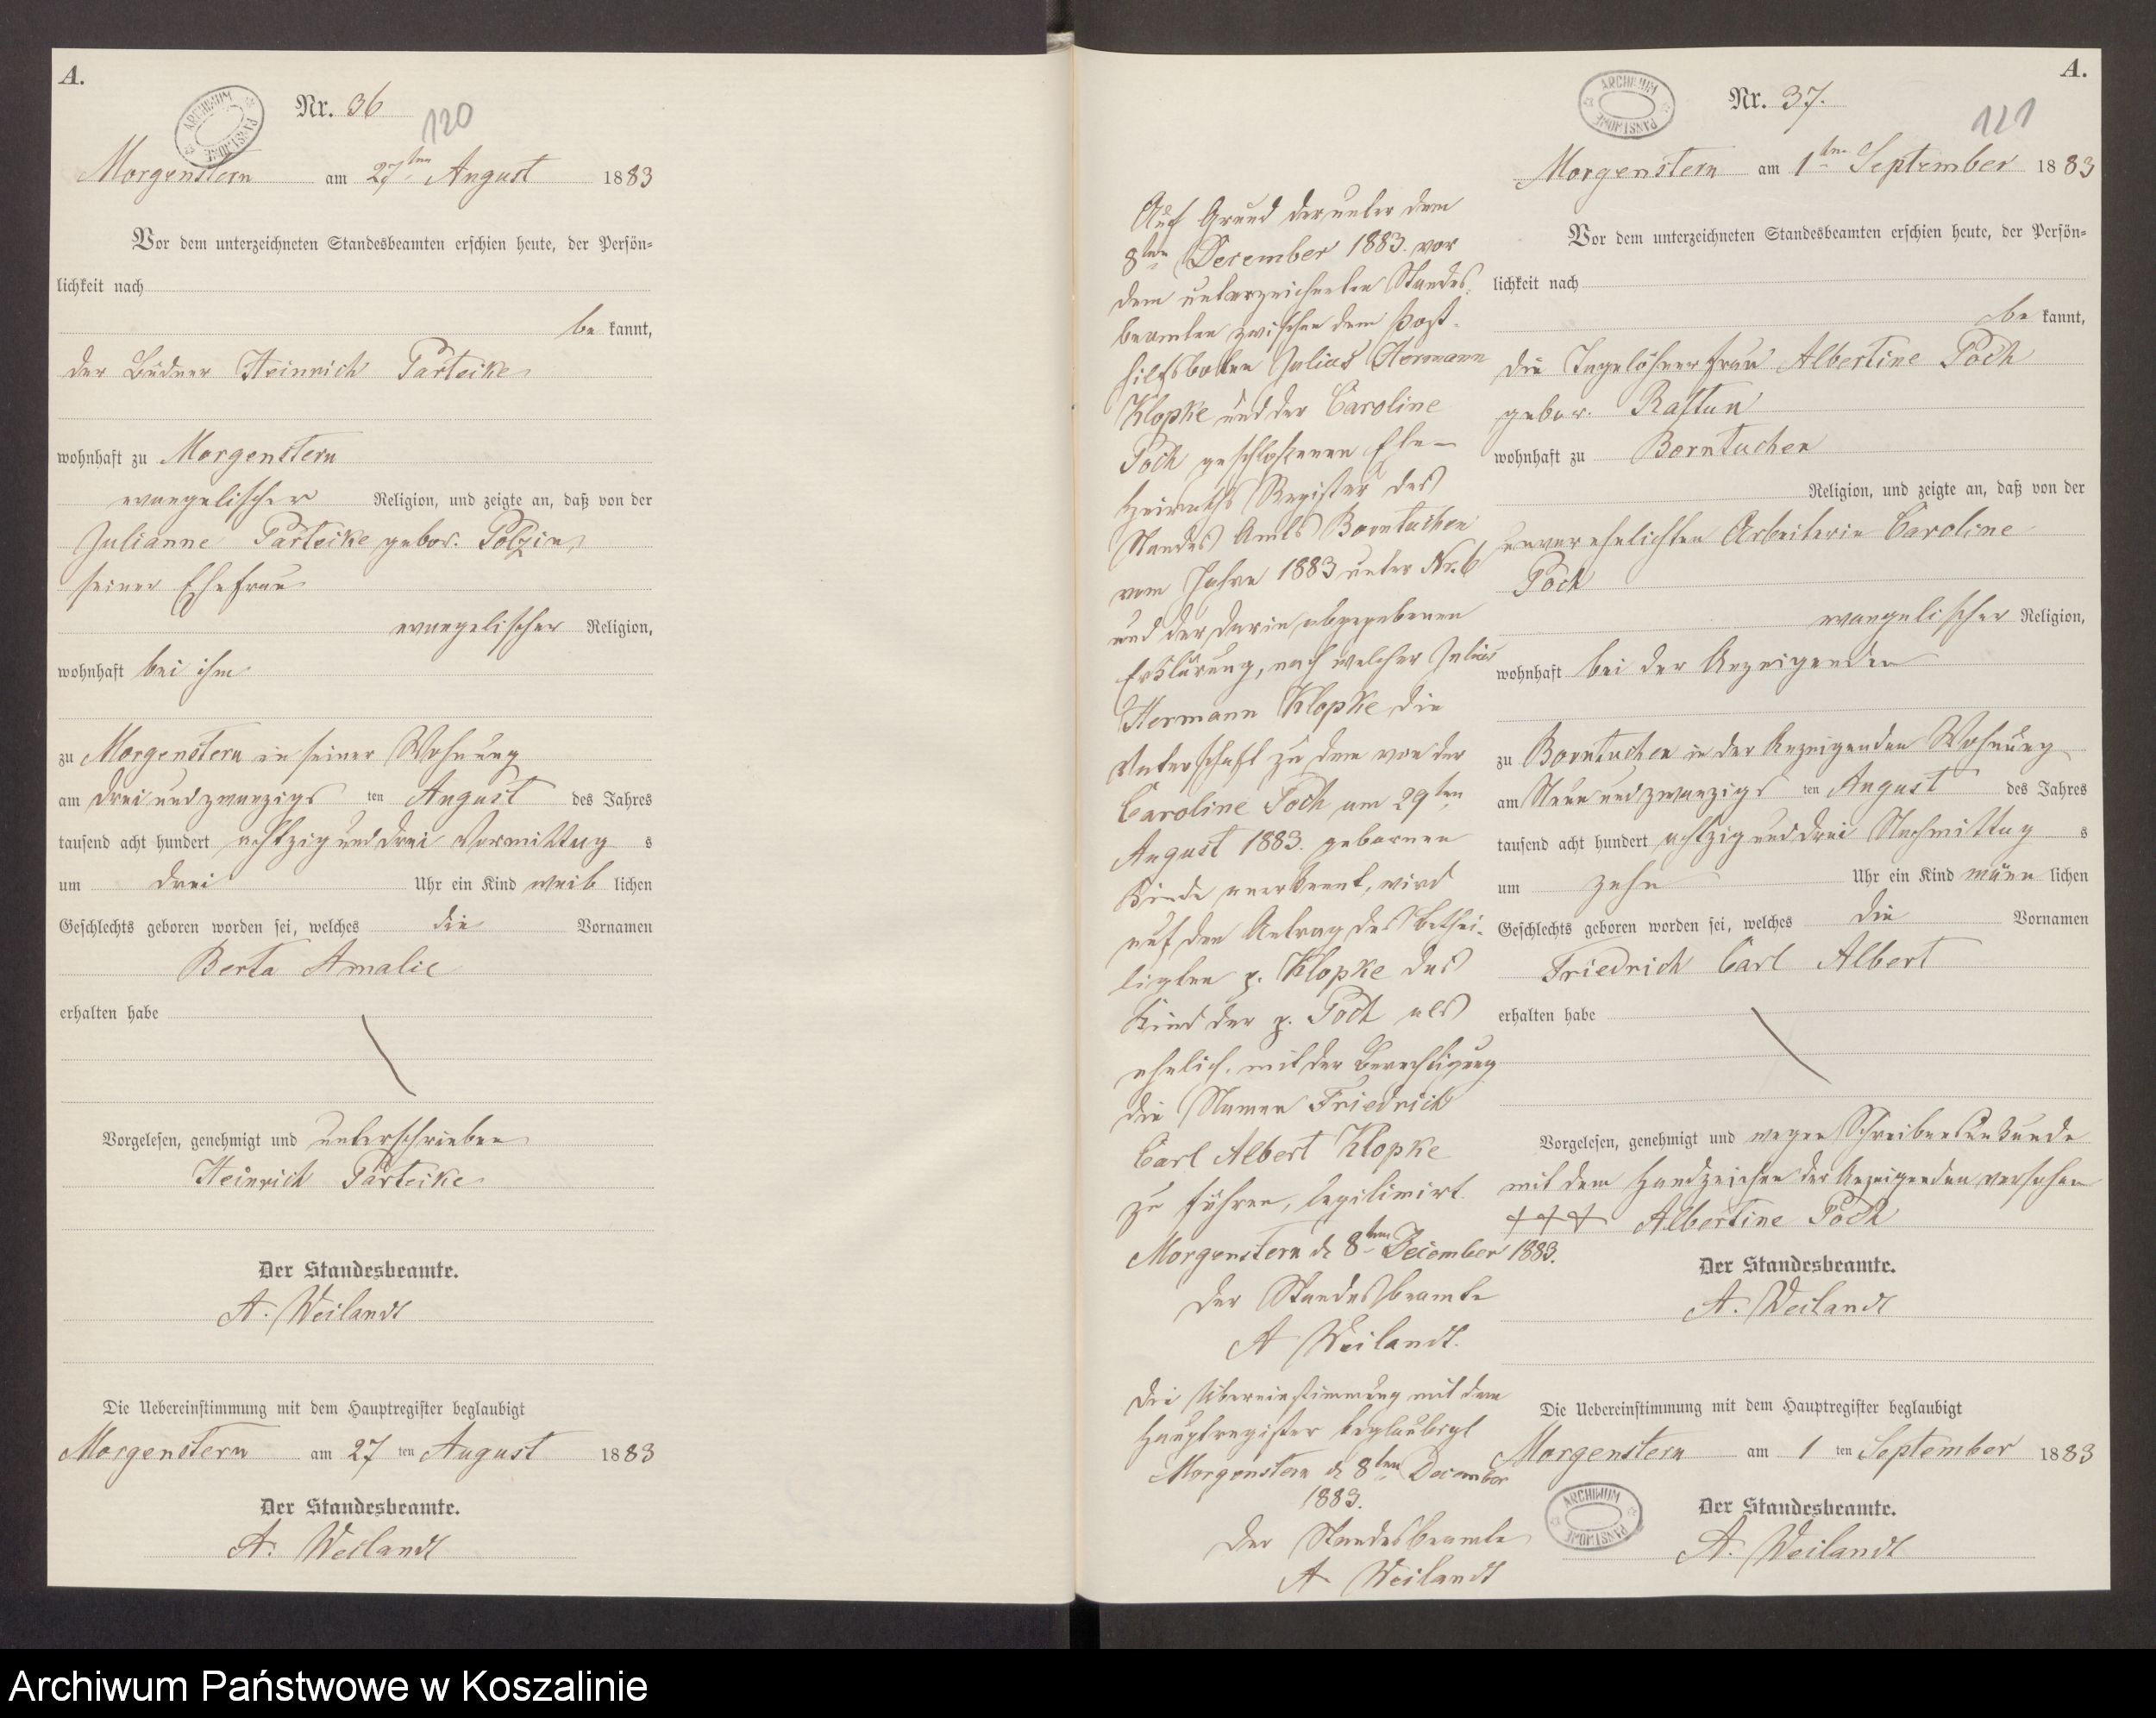 A.
ARCHIWUM PAŃSTWOWE
Nr. 36
120
Morgenstern am 27ten August 1883
Vor dem unterzeichneten Standesbeamten erschien heute, der Persön-
lichkeit nach
be kannt,
der Büdner Heinrich Parteike
wohnhaft zu Morgenstern
evangelischer Religion, und zeigte an, daß von der
Julianne Parteike gebor. Polzin,
seiner Ehefrau
evangelischer Religion,
wohnhaft bei ihm
zu Morgenstern in seiner Wohnung
am dreiundzwanzigs ten August des Jahres
tausend acht hundert achtzig und drei Vormittag s
um drei Uhr ein Kind weib lichen
Geschlechts geboren worden sei, welches die Vornamen
Berta Amalie
erhalten habe
Vorgelesen, genehmigt und unterschrieben
Heinrich Parteike
Der Standesbeamte.
A. Weilandt
Die Uebereinstimmung mit dem Hauptregister beglaubigt
Morgenstern am 27 ten August 1883
Der Standesbeamte.
A. Weilandt
Auf Grund der unter dem
8ten December 1883. vor
dem unterzeichneten Standes-
beamten zwischen dem Post-
hilfsboten Julius Hermann
Klopke und der Caroline
Poch geschlossenen Ehe-
Heiraths Register des
Standes Amts Borntuchen
vom Jahre 1883 unter Nr. 6
und der darin abgegebenen
Erklärung, nach welcher Julius
Hermann Klopke die
Vaterschaft zu dem von der
Caroline Poch am 29ten
August 1883. geborenen
Kinde anerkennt, wird
auf den Antrag des bethei-
ligten p. Klopke das
Kind der p. Poch als
ehelich, mit der Berechtigung
die Namen Friedrich
Carl Albert Klopke
zu führen, legitimirt.
Morgenstern d. 8ten December 1883.
Der Standesbeamte
A Weilandt.
Die Übereinstimmung mit dem
Hauptregister beglaubigt
Morgenstern d. 8ten December
1883.
Der Standesbeamte
A Weilandt
A.
ARCHIWUM PAŃSTWOWE
Nr. 37.
121
Morgenstern am 1ten September 1883
Vor dem unterzeichneten Standesbeamten erschien heute, der Persön-
lichkeit nach
be kannt,
die Tagelöhnerfrau Albertine Poch
gebor. Rastun
wohnhaft zu Borntuchen
Religion, und zeigte an, daß von der
unverehelichten Arbeiterin Caroline
Poch
evangelischer Religion,
wohnhaft bei der Anzeigenden
zu Borntuchen in der Anzeigenden Wohnung
am Neunundzwanzigs ten August des Jahres
tausend acht hundert achtzig und drei Nachmittag s
um zehn Uhr ein Kind männ lichen
Geschlechts geboren worden sei, welches die Vornamen
Friedrich Carl Albert
erhalten habe
Vorgelesen, genehmigt und wegen Schreibensunkunde
mit dem Handzeichen der Anzeigenden versehen
+++ Albertine Poch
Der Standesbeamte.
A. Weilandt
Die Uebereinstimmung mit dem Hauptregister beglaubigt
Morgenstern am 1 ten September 1883
ARCHIWUM PAŃSTWOWE
Der Standesbeamte.
A. Weilandt
Archiwum Państwowe w Koszalinie